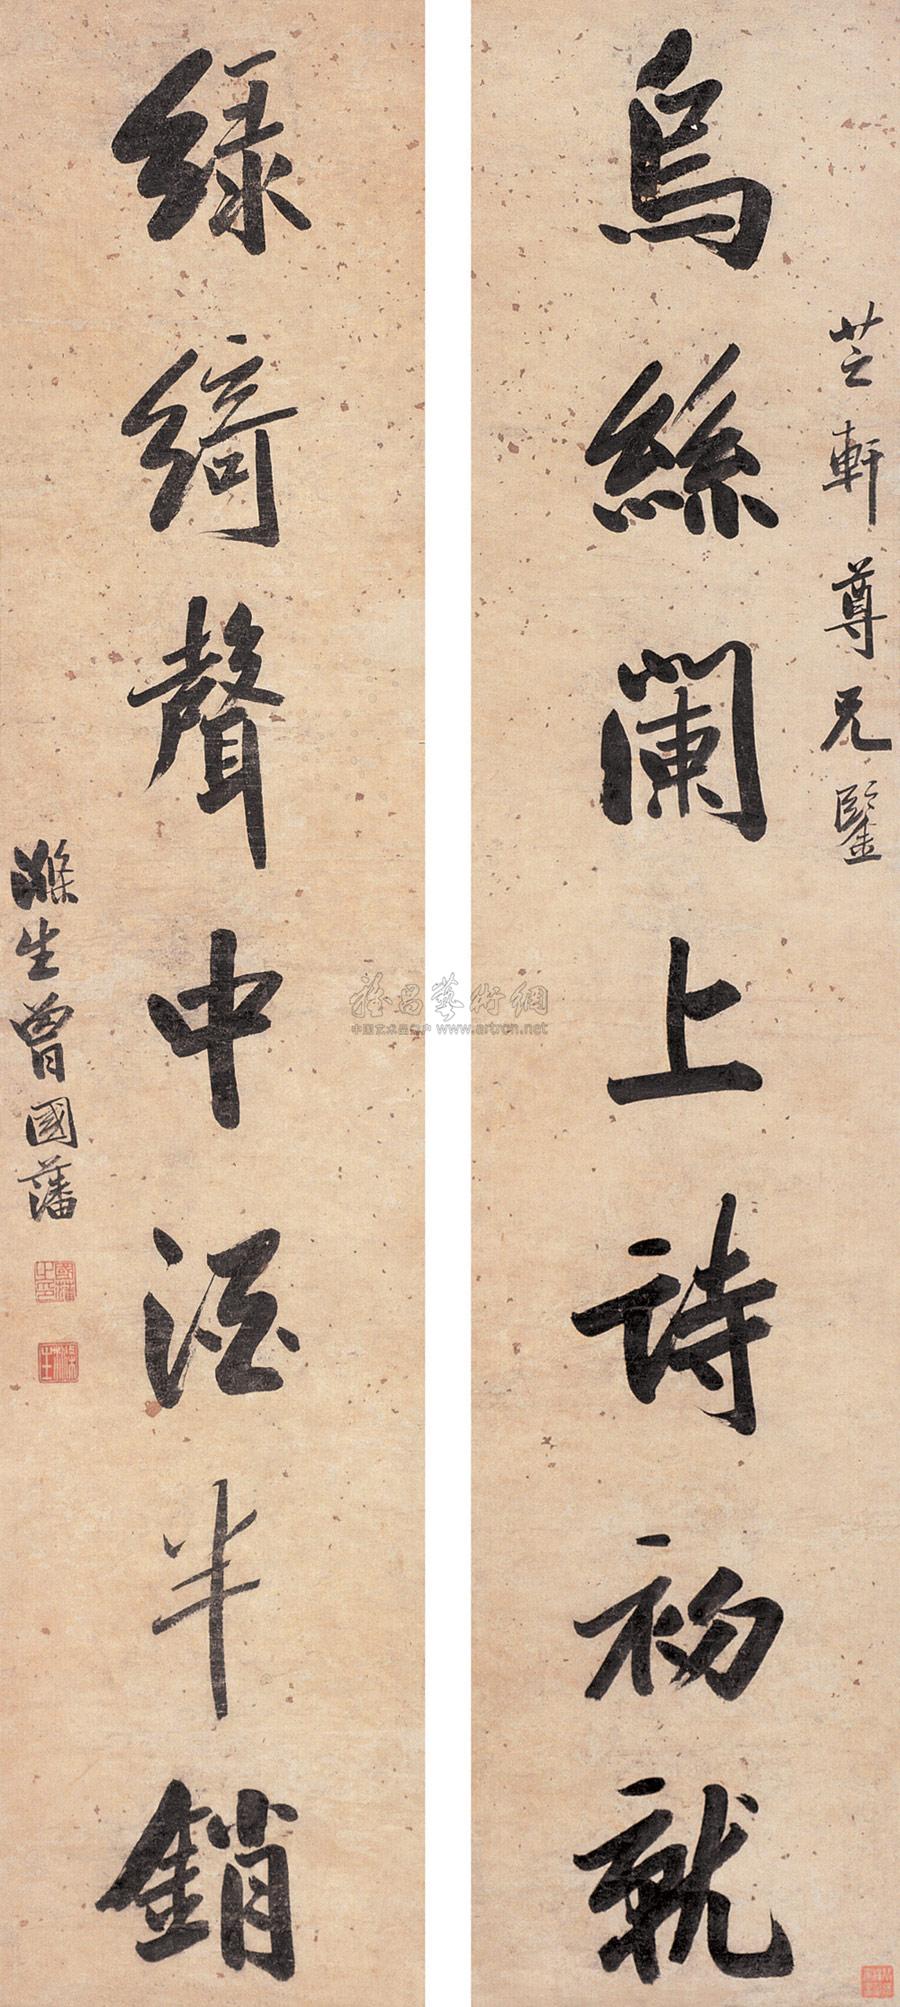 芝軒尊兄鑒
烏絲闌上詩初就
綠綺聲中酒半銷
滌生曾國藩
國藩之印
滌生
雅昌藝術網
中国艺术品门户 www.artron.net